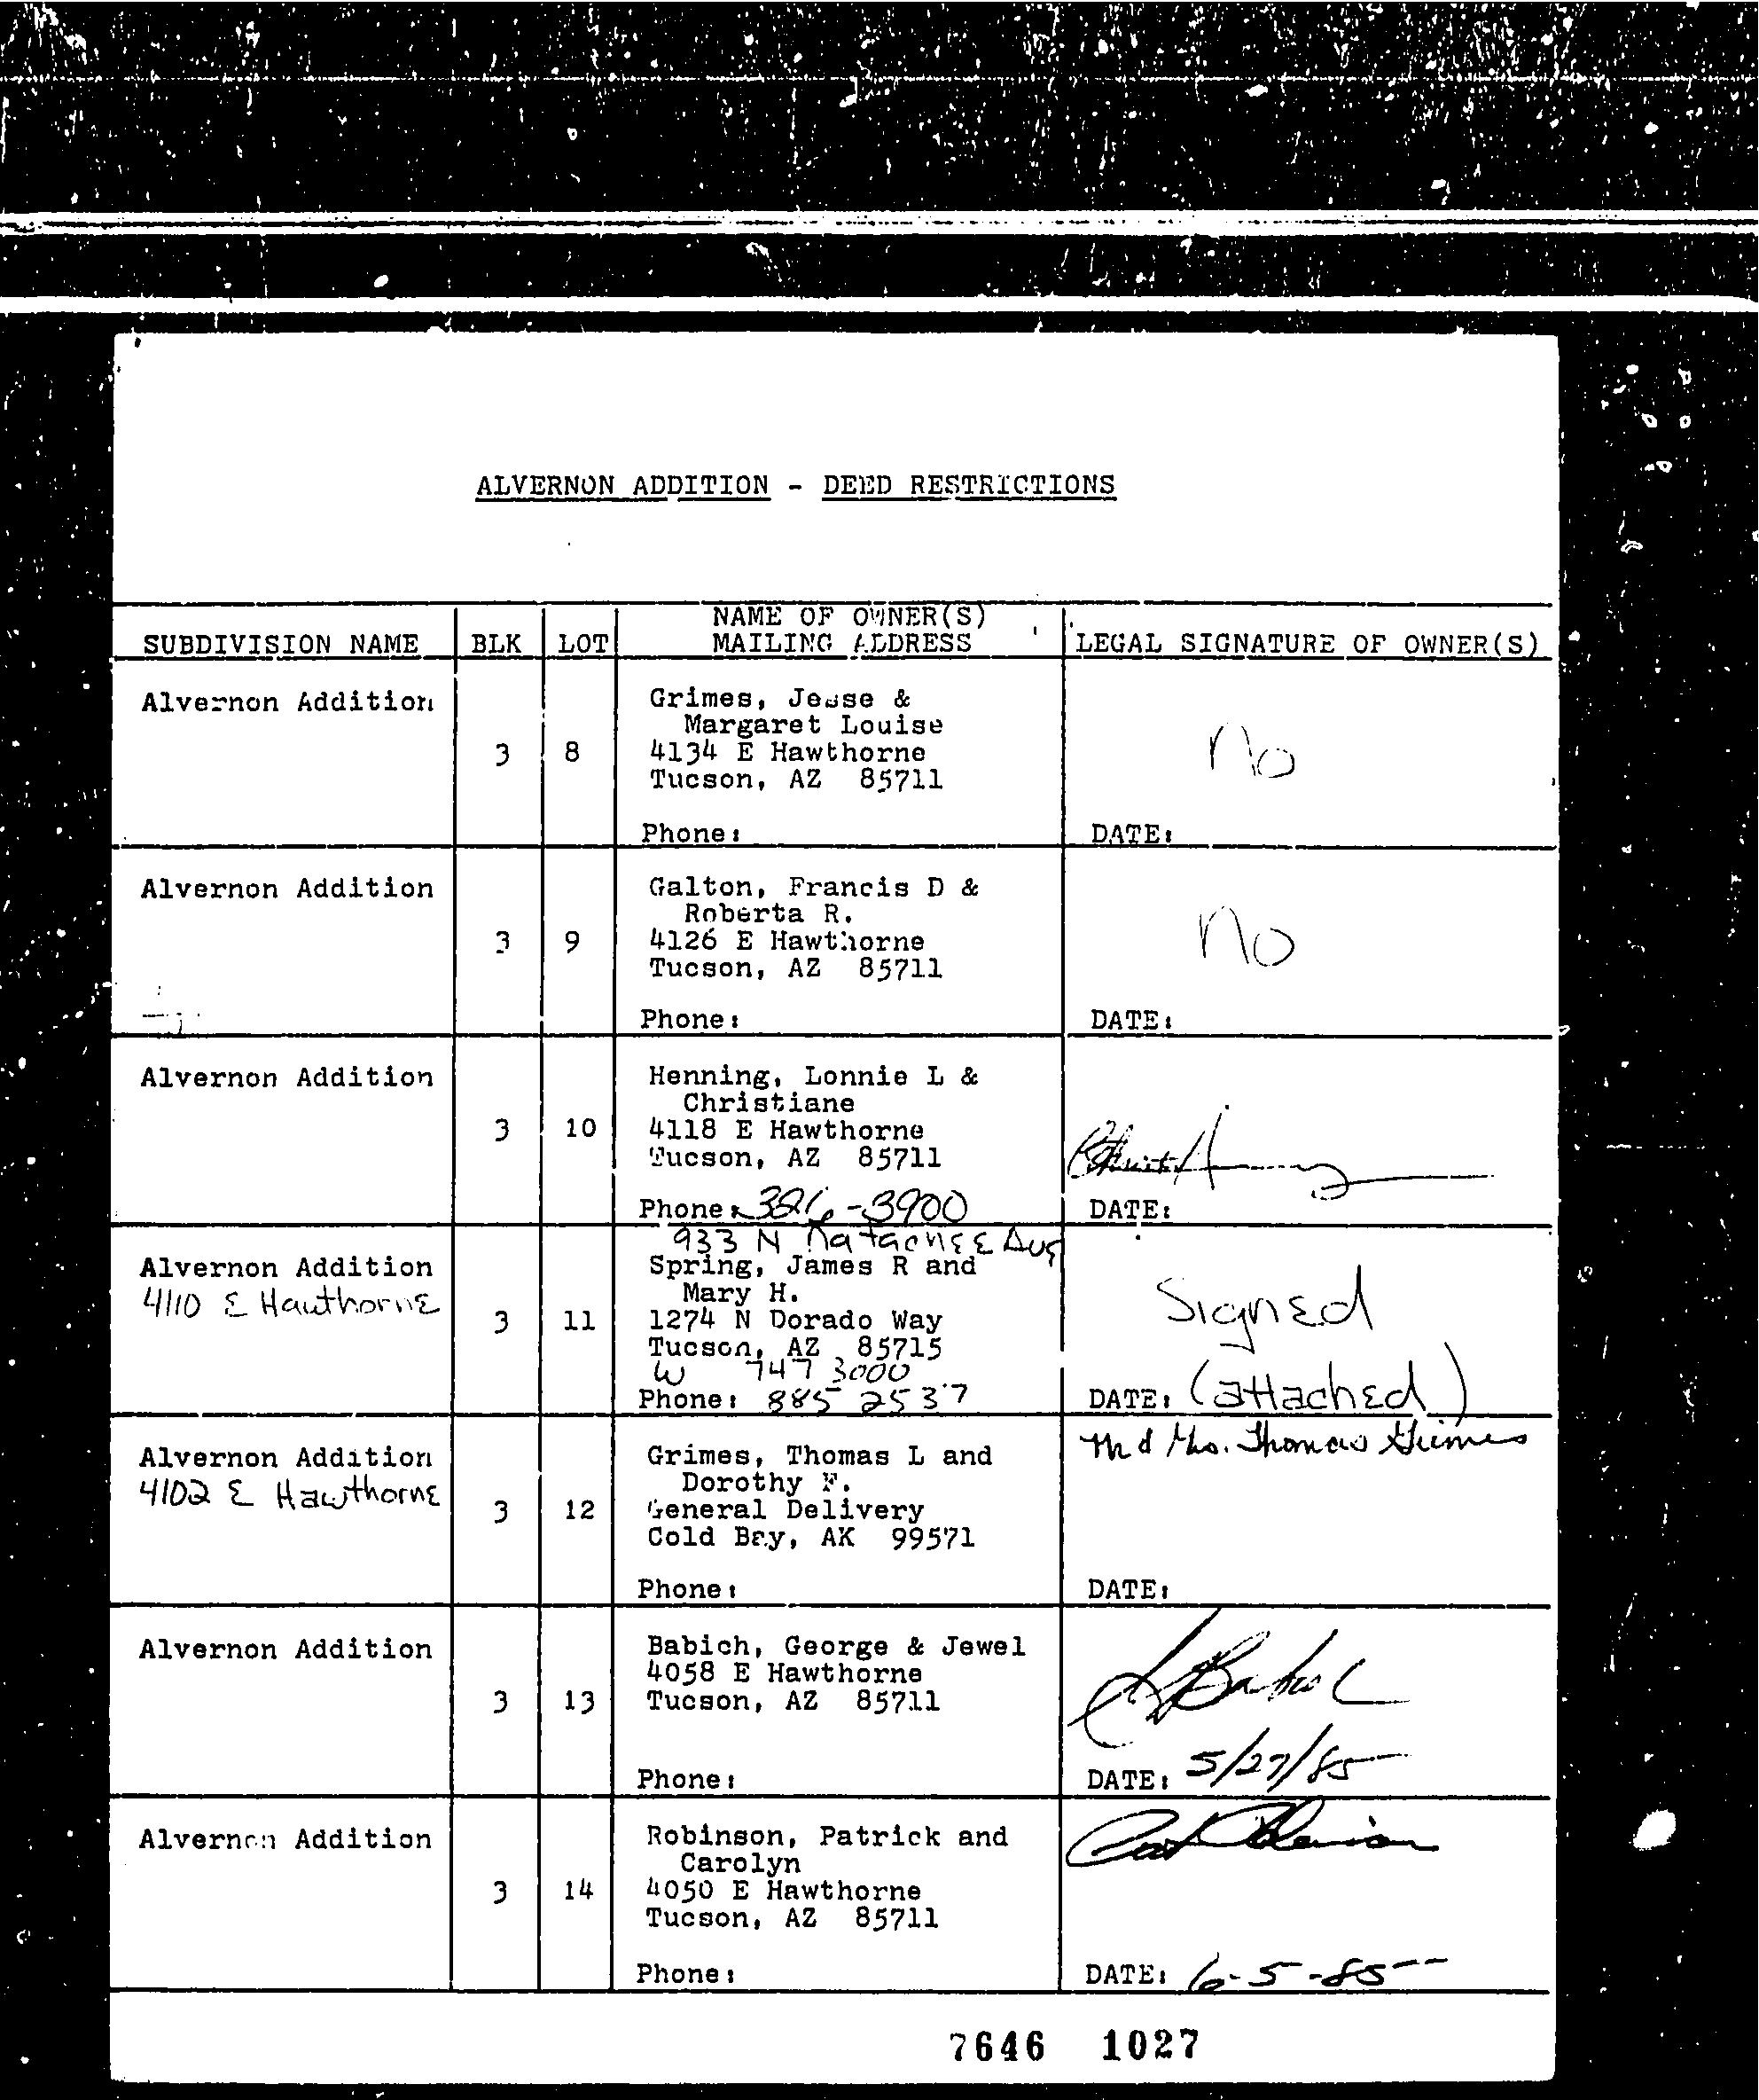 ALVERNON ADDITION - DEED RESTRICTIONS
NAME OF OWNER(S)
SUBDIVISION NAME BLK LOT MAILING ADDRESS LEGAL SIGNATURE OF OWNER(S)
Alvernon Addition Grimes, Jesse &
Margaret Louise
3 8 4134 E Hawthorne No
Tucson, AZ 85711
Phone: DATE:
Alvernon Addition Galton, Francis D &
Roberta R.
3 9 4126 E Hawthorne No
Tucson, AZ 85711
Phone: DATE:
Alvernon Addition Henning, Lonnie L &
Christiane
3 10 4118 E Hawthorne
Tucson, AZ 85711
Phone: 326-3900 DATE:
933 N Natachee Ave
Alvernon Addition Spring, James R and
4110 E Hawthorne Mary H. Signed
3 11 1274 N Dorado Way
Tucson, AZ 85715
W 747 3000
Phone: 885 2537 DATE: (attached)
Alvernon Addition Grimes, Thomas L and M d Mrs. Thomas Grimes
4102 E Hawthorne Dorothy F.
3 12 General Delivery
Cold Bay, AK 99571
Phone: DATE:
Alvernon Addition Babich, George & Jewel
4058 E Hawthorne J Babich
3 13 Tucson, AZ 85711
Phone: DATE: 5/27/85
Alvernon Addition Robinson, Patrick and Pat Robinson
Carolyn
3 14 4050 E Hawthorne
Tucson, AZ 85711
Phone: DATE: 6-5-85
7646 1027